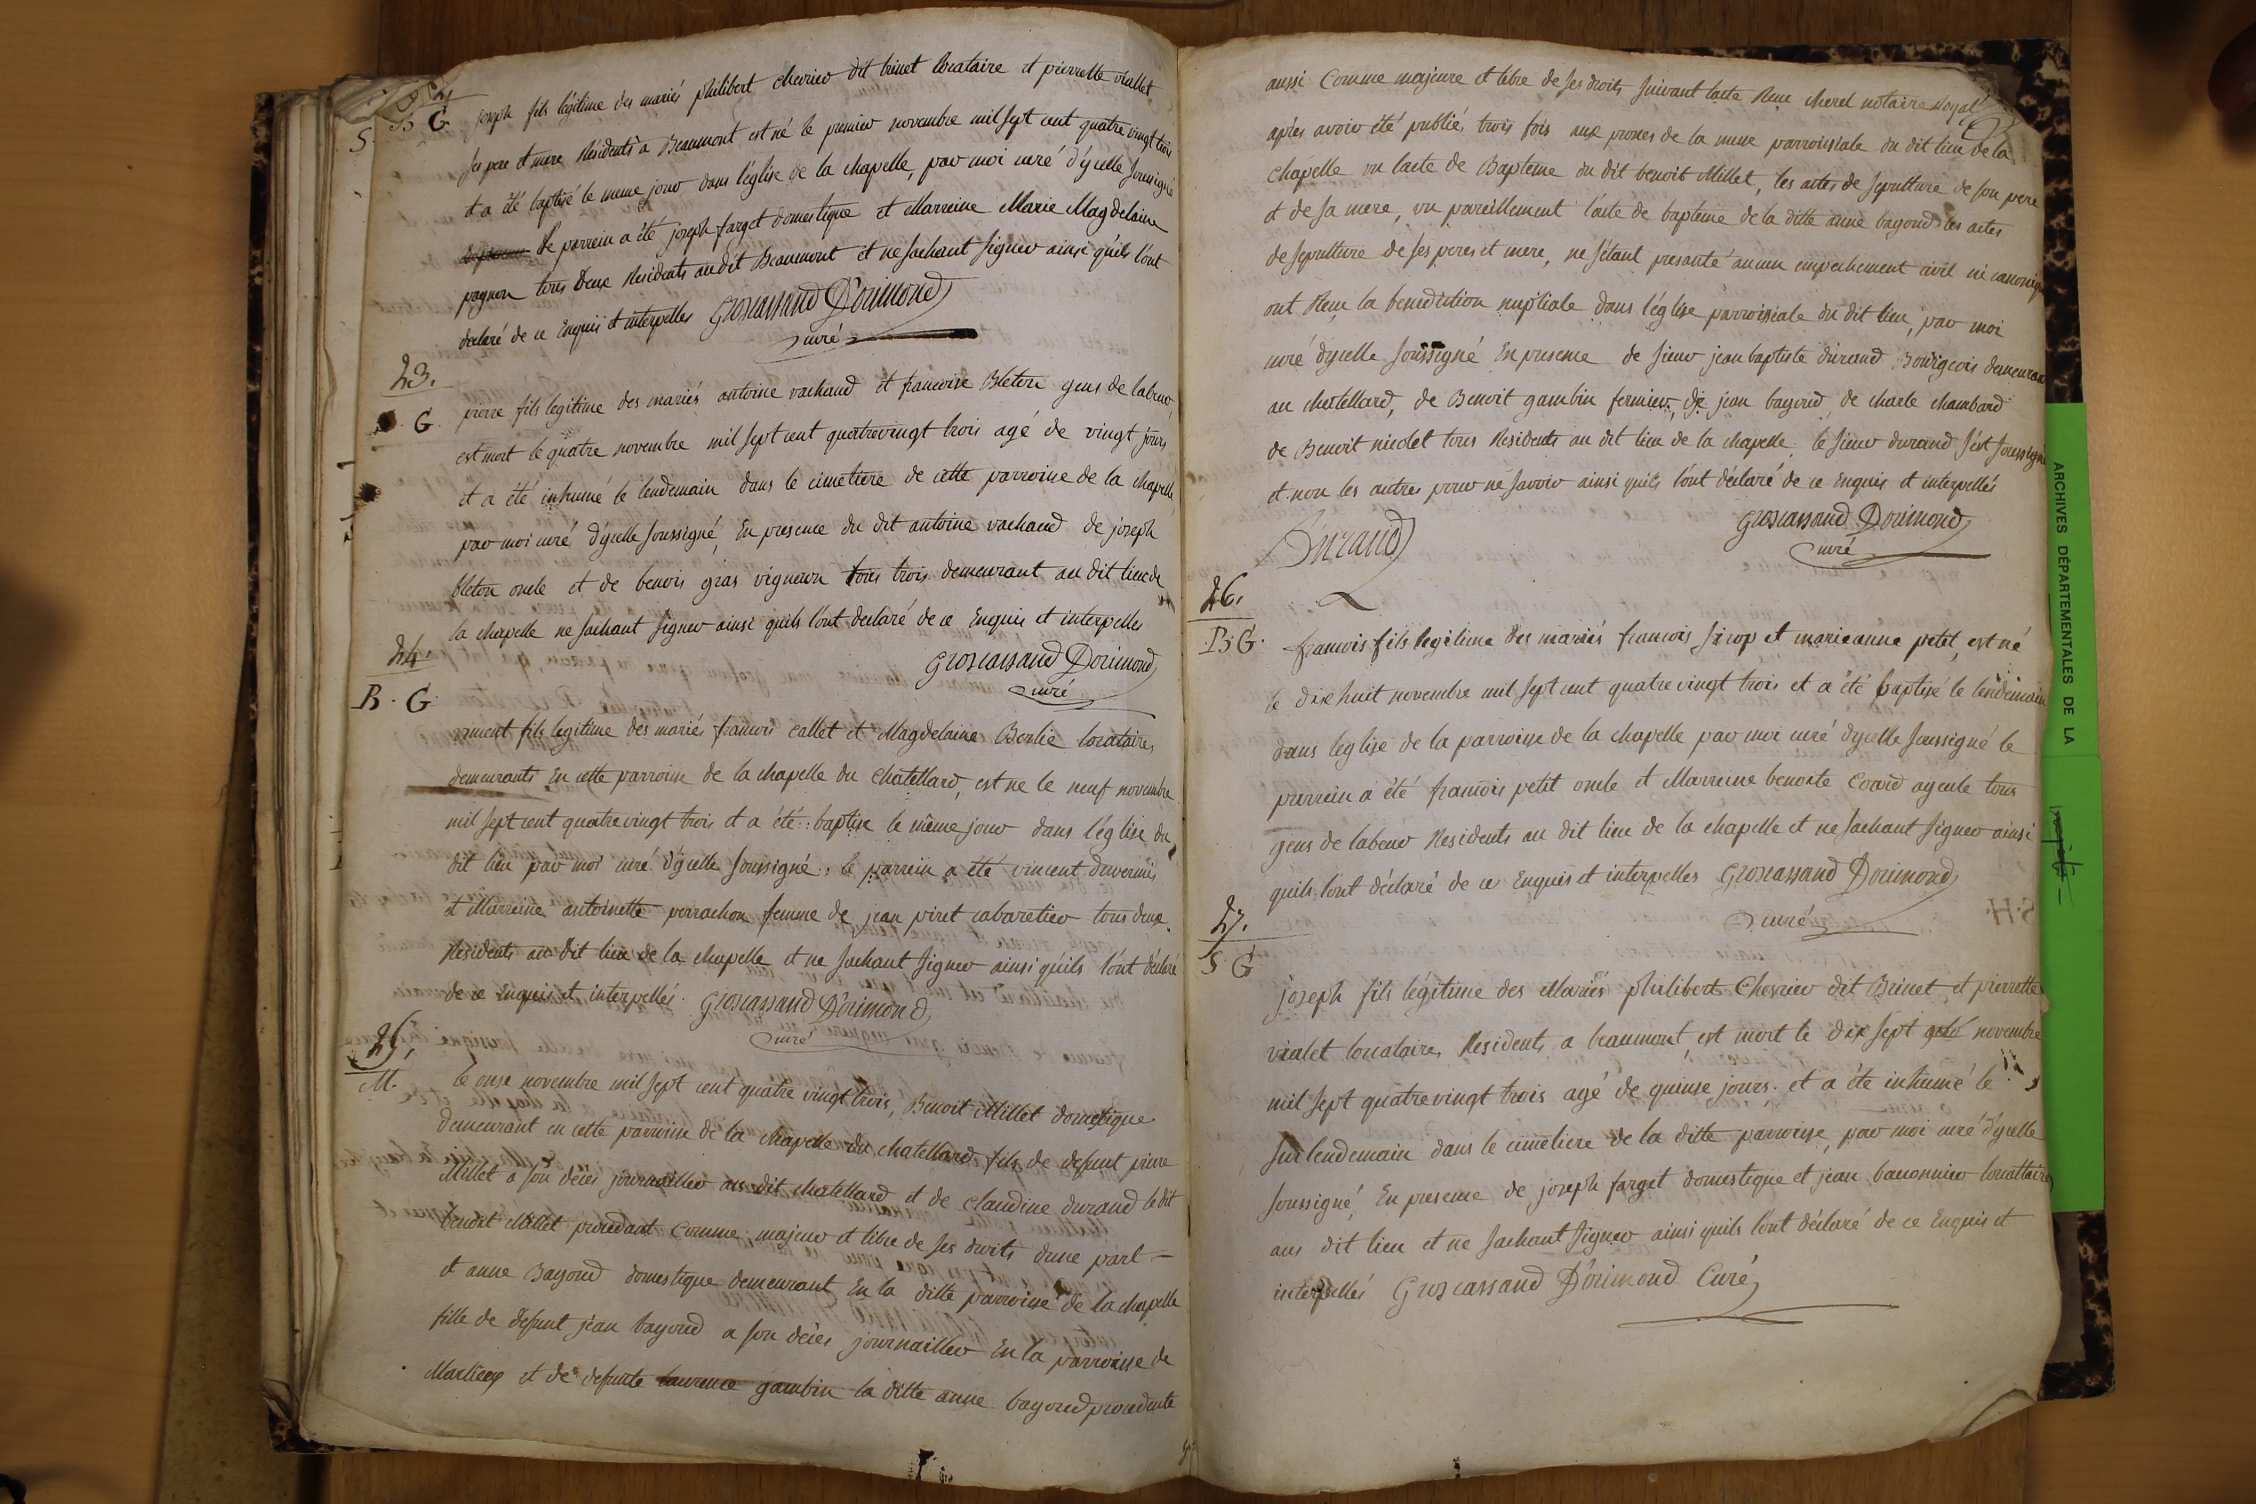 B G
joseph fils légitime des mariés philibert chevrier dit brinet locataire et pierrette viallet
ses pere et mere Résidents a Beaumont est né le premier novembre mil sept cent quatre vingt trois
et a été baptisé le meme jour dans l'église de la chapelle, par moi curé d'ycelle soussigné
le parrein a été joseph farget domestique et Marreine Marie Magdelaine
pagnon tous deux Résidents audit Beaumont et ne sachant signer ainsi qu'ils l'ont
declaré de ce Enquis et interpellés Groscassand Dorimond
curé
23.
G.
pierre fils legitime des mariés antoine vachaud et francoise Bleton gens de labeur,
est mort le quatre novembre mil sept cent quatrevingt trois agé de vingt jours
et a été inhumé le lendemain dans le cimetiere de cette parroisse de la chapelle
par moi curé d'ycelle soussigné, En presence du dit antoine vachaud de joseph
bleton oncle et de benois gras vigneron tous trois demeurant au dit lieu de
la chapelle ne sachant signer ainsi quils l'ont declaré de ce Enquis et interpelles
Groscassand Dorimond
curé
24
B. G.
vincent fils legitime des mariés francois callet et Magdelaine Berlie locataires
demeurants En cette parroisse de la chapelle du chatellard, est ne le neuf novembre
mil sept cent quatre vingt trois et a été baptise le même jour dans l'église du
dit lieu par moi curé d'ycelle soussigné. le parrein a été vincent duvernis
et Marreine antoinette perrachon femme de jean piret cabaretier tous deux
Residents au dit lieu de la chapelle et ne sachant signer ainsi qu'ils l'ont déclaré
de ce enquis et interpellés. Groscassand Dorimond
curé
25,
M.
le onse novembre mil sept cent quatre vingt trois, Benoit Millet domestique
demeurant en cette parroisse de la chapelle du chatellard fils de defunt pierre
Millet a son déces journaillier au dit chatellard et de claudine durand le dit
benoit Millet procedant comme majeur et libre de ses droits d'une part
et anne Bayoud domestique demeurant En la ditte parroisse de la chapelle
fille de defunt jean bayoud a son déces journaillier En la parroisse de
Marlieux et de defunte laurence gambin la ditte anne bayoud procedente
aussi Comme majeure et libre de ses droits suivant l'acte Reçu cherel notaire Royal
après avoir été publiés trois fois aux prones de la messe parroissiale du dit lieu de la
chapelle vu l'acte de Bapteme du dit benoit Millet, les actes de sepulture de son pere
et de sa mere, vu pareillement l'acte de bapteme de la ditte anne bayoud les actes
de sepulture de ses peres et mere, ne s'étant presenté aucun empechement civil ni canonique
ont Reçu la benediction nuptiale dans l'église parroissiale du dit lieu, par moi
curé d'ycelle soussigné En presence de sieur jean baptiste durand Bourgeois demeurant
au chatellard, de Benoit gambin fermier, de jean bayoud, de charle chambard
de Benoit nicolet tous Residents au dit lieu de la chapelle. le sieur durand s'est soussigné
et non les autres pour ne savoir ainsi qu'ils l'ont déclaré de ce Enquis et interpellés
Durand
Groscassand Dorimond
curé
26.
B G.
francois fils legitime des mariés francois sirop et marieanne petit, est né
le dix huit novembre mil sept cent quatre vingt trois et a été baptisé le lendemain
dans l'eglise de la parroisse de la chapelle par moi curé d'ycelle soussigné le
parrein a été francois petit oncle et Marreine benoite Coard ayeule tous
gens de labeur Residents au dit lieu de la chapelle et ne sachant signer ainsi
qu'ils l'ont déclaré de ce Enquis et interpelles Groscassand Dorimond
curé
27.
S G
joseph fils légitime des Mariés philibert Chevrier dit Brinet et pierrette
vialet locataires Residents a beaumont est mort le dix sept novembre
mil sept quatrevingt trois agé de quinse jours et a été inhumé le
surlendemain dans le cimetiere de la ditte parroisse, par moi curé d'ycelle
soussigné, En presence de joseph farget domestique et jean baconnier locattaire
au dit lieu et ne sachant signer ainsi quils l'ont déclaré de ce Enquis et
interpellés Groscassand Dorimond Curé
ARCHIVES DÉPARTEMENTALES DE LA